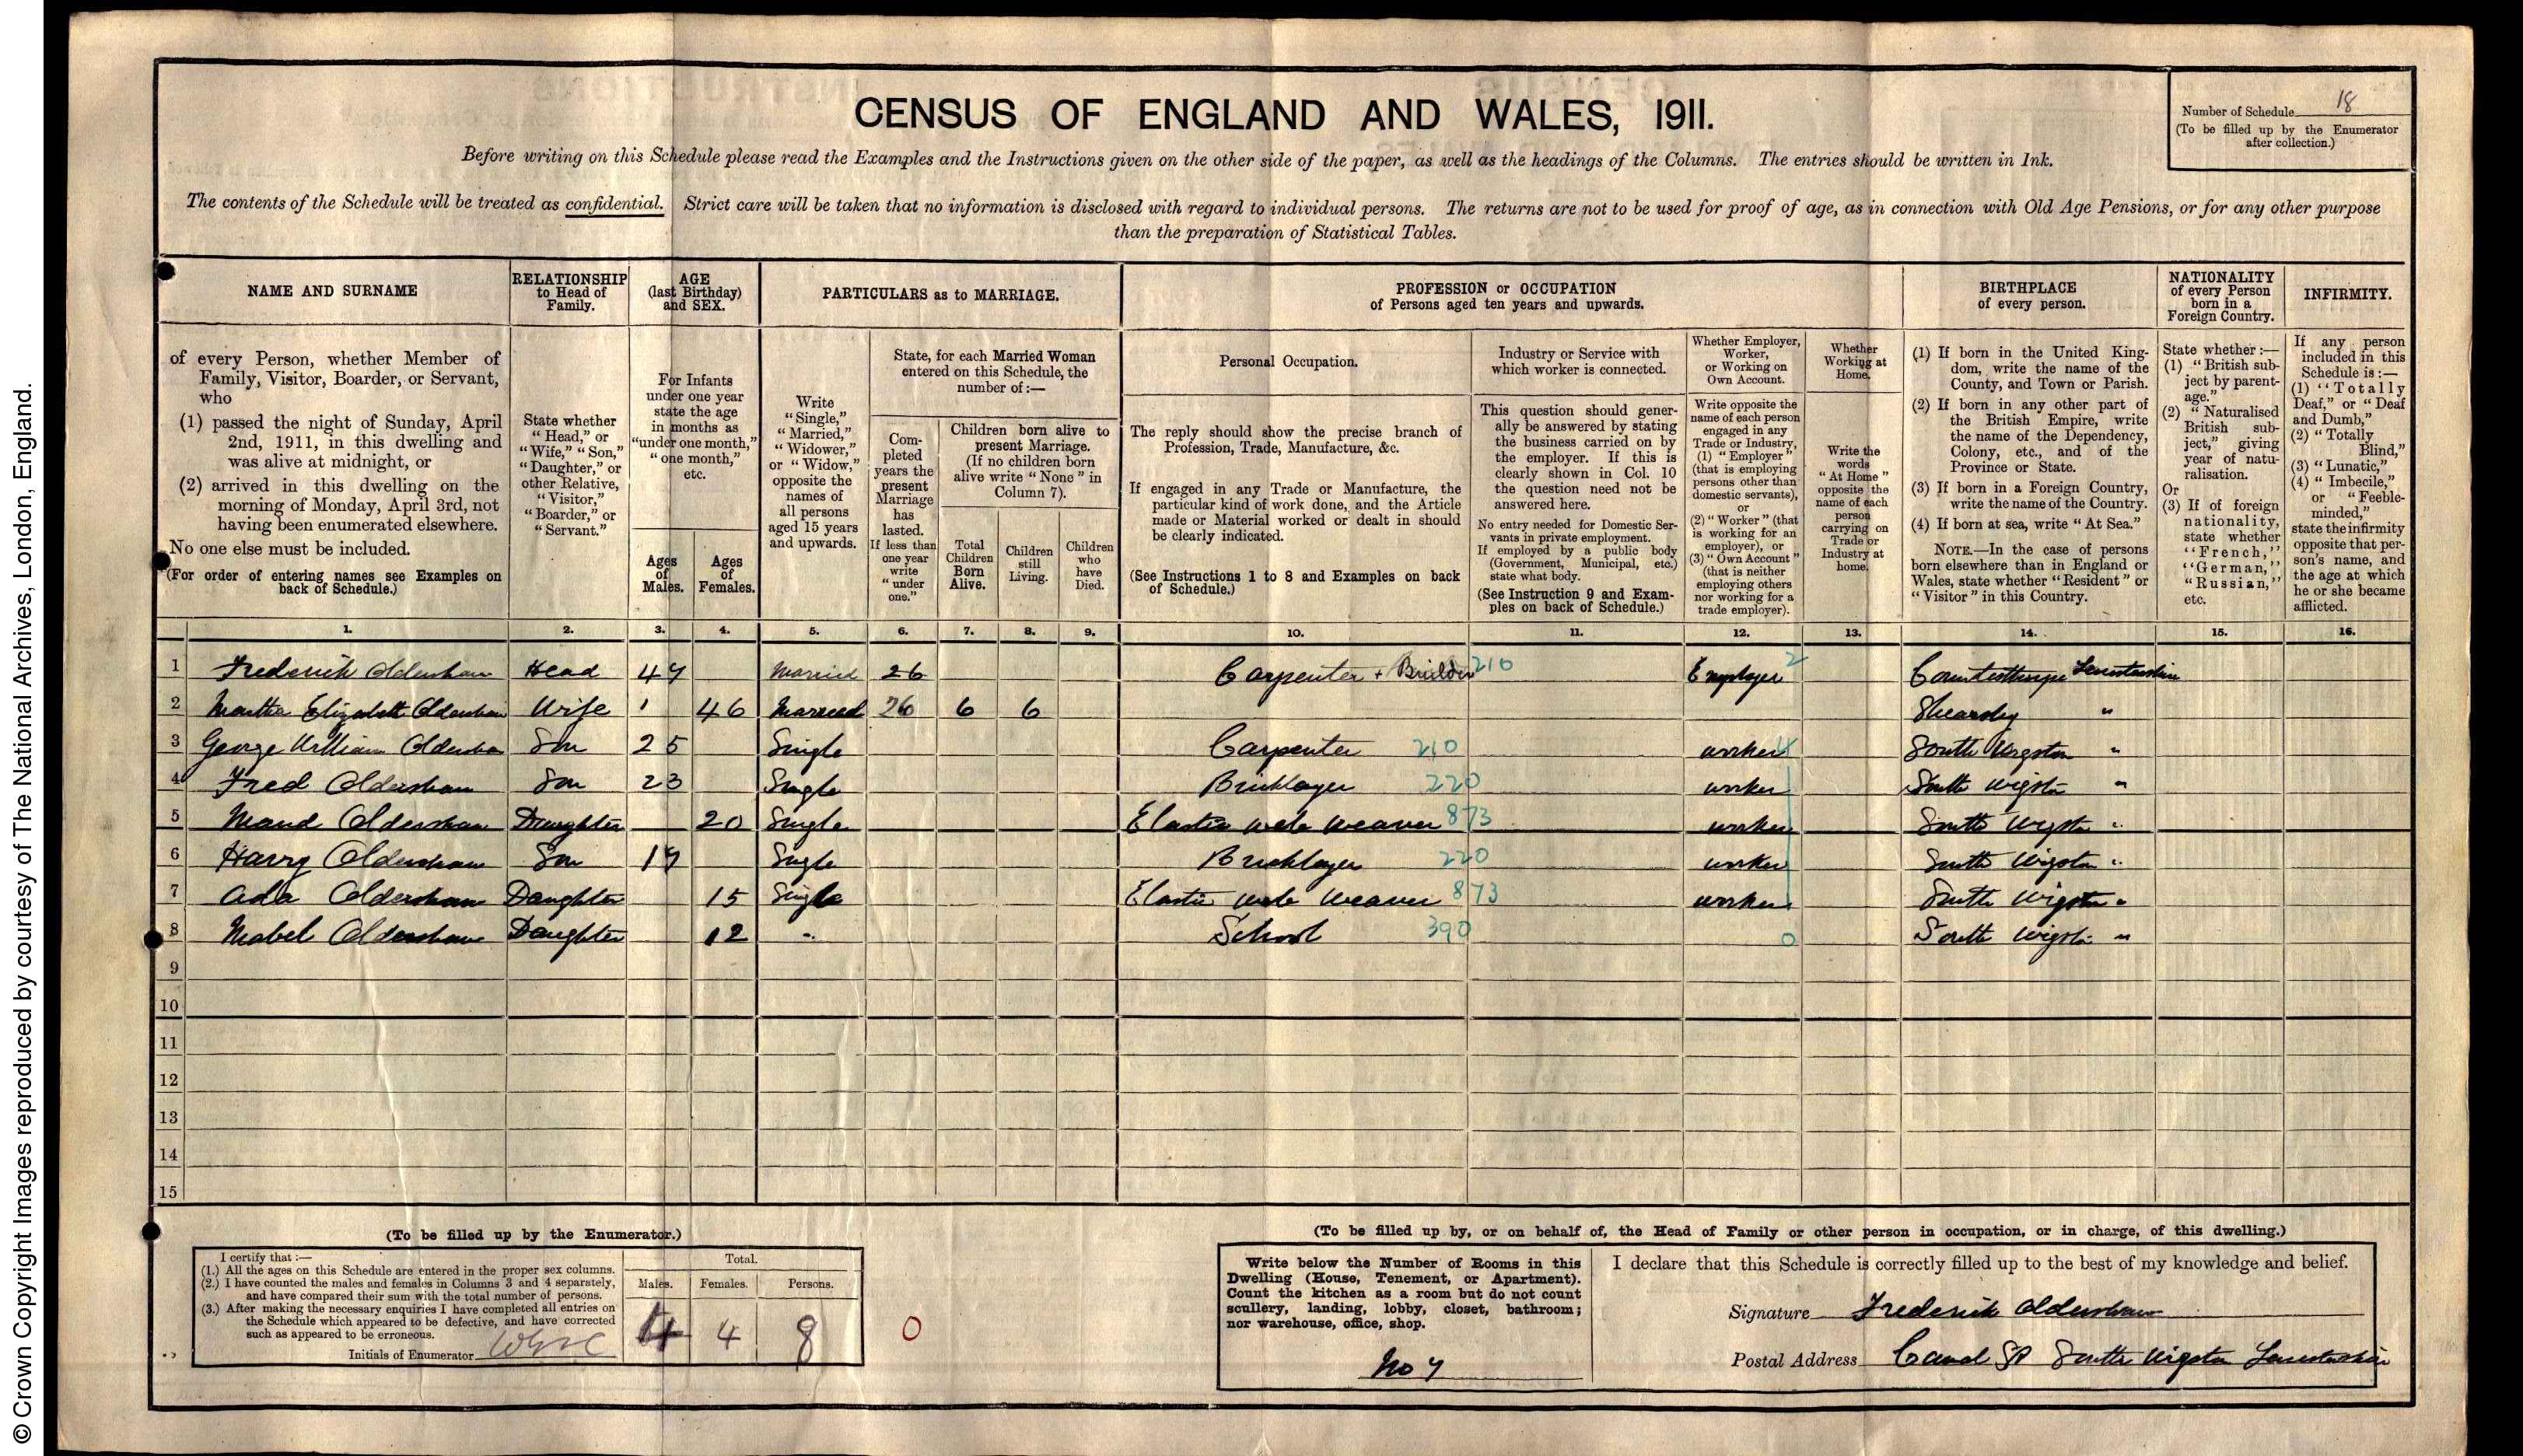 CENSUS OF ENGLAND AND WALES, 1911.
Number of Schedule 18
(To be filled up by the Enumerator after collection.)
Before writing on this Schedule please read the Examples and the Instructions given on the other side of the paper, as well as the headings of the Columns. The entries should be written in Ink.
The contents of the Schedule will be treated as confidential. Strict care will be taken that no information is disclosed with regard to individual persons. The returns are not to be used for proof of age, as in connection with Old Age Pensions, or for any other purpose
than the preparation of Statistical Tables.
NAME AND SURNAME
of every Person, whether Member of
Family, Visitor, Boarder, or Servant,
who
(1) passed the night of Sunday, April
2nd, 1911, in this dwelling and
was alive at midnight, or
(2) arrived in this dwelling on the
morning of Monday, April 3rd, not
having been enumerated elsewhere.
No one else must be included.
(For order of entering names see Examples on
back of Schedule.)
RELATIONSHIP
to Head of
Family.
State whether
"Head," or
"Wife," "Son,"
"Daughter," or
other Relative,
"Visitor,"
"Boarder," or
"Servant."
AGE
(last Birthday)
and SEX.
For Infants
under one year
state the age
in months as
"under one month,"
"one month,"
etc.
Ages
of
Males.
Ages
of
Females.
PARTICULARS as to MARRIAGE.
Write
"Single,"
"Married,"
"Widower,"
or "Widow,"
opposite the
names of
all persons
aged 15 years
and upwards.
State, for each Married Woman
entered on this Schedule, the
number of:—
Com-
pleted
years the
present
Marriage
has
lasted.
If less than
one year
write
"under
one."
Children born alive to
present Marriage.
(If no children born
alive write "None" in
Column 7).
Total
Children
Born
Alive.
Children
still
Living.
Children
who
have
Died.
PROFESSION or OCCUPATION
of Persons aged ten years and upwards.
Personal Occupation.
The reply should show the precise branch of
Profession, Trade, Manufacture, &c.
If engaged in any Trade or Manufacture, the
particular kind of work done, and the Article
made or Material worked or dealt in should
be clearly indicated.
(See Instructions 1 to 8 and Examples on back
of Schedule.)
Industry or Service with
which worker is connected.
This question should gener-
ally be answered by stating
the business carried on by
the employer. If this is
clearly shown in Col. 10
the question need not be
answered here.
No entry needed for Domestic Ser-
vants in private employment.
If employed by a public body
(Government, Municipal, etc.)
state what body.
(See Instruction 9 and Exam-
ples on back of Schedule.)
Whether Employer,
Worker,
or Working on
Own Account.
Write opposite the
name of each person
engaged in any
Trade or Industry,
(1) "Employer"
(that is employing
persons other than
domestic servants),
or
(2) "Worker" (that
is working for an
employer), or
(3) "Own Account"
(that is neither
employing others
nor working for a
trade employer).
Whether
Working at
Home.
Write the
words
"At Home"
opposite the
name of each
person
carrying on
Trade or
Industry at
home.
BIRTHPLACE
of every person.
(1) If born in the United King-
dom, write the name of the
County, and Town or Parish.
(2) If born in any other part of
the British Empire, write
the name of the Dependency,
Colony, etc., and of the
Province or State.
(3) If born in a Foreign Country,
write the name of the Country.
(4) If born at sea, write "At Sea."
NOTE.—In the case of persons
born elsewhere than in England or
Wales, state whether "Resident" or
"Visitor" in this Country.
NATIONALITY
of every Person
born in a
Foreign Country.
State whether:—
(1) "British sub-
ject by parent-
age."
(2) "Naturalised
British sub-
ject," giving
year of natu-
ralisation.
Or
(3) If of foreign
nationality,
state whether
"French,"
"German,"
"Russian,"
etc.
INFIRMITY.
If any person
included in this
Schedule is:—
(1) "Totally
Deaf," or "Deaf
and Dumb,"
(2) "Totally
Blind,"
(3) "Lunatic,"
(4) "Imbecile,"
or "Feeble-
minded,"
state the infirmity
opposite that per-
son's name, and
the age at which
he or she became
afflicted.
1. 2. 3. 4. 5. 6. 7. 8. 9. 10. 11. 12. 13. 14. 15. 16.
1 Frederick Oldershaw Head 47 Married 26 Carpenter + Builder 210 Employer 2 Countesthorpe Leicestershire
2 Martha Elizabeth Oldershaw Wife 46 Married 26 6 6 Shearsby "
3 George William Oldershaw Son 25 Single Carpenter 210 worker 4 South Wigston "
4 Fred Oldershaw Son 23 Single Bricklayer 220 worker South Wigston "
5 Maud Oldershaw Daughter 20 Single Elastic web weaver 873 worker South Wigston "
6 Harry Oldershaw Son 17 Single Bricklayer 220 worker South Wigston "
7 Ada Oldershaw Daughter 15 Single Elastic web weaver 873 worker South Wigston "
8 Mabel Oldershaw Daughter 12 " School 390 0 South Wigston "
9
10
11
12
13
14
15
(To be filled up by the Enumerator.)
I certify that:—
(1.) All the ages on this Schedule are entered in the proper sex columns.
(2.) I have counted the males and females in Columns 3 and 4 separately,
and have compared their sum with the total number of persons.
(3.) After making the necessary enquiries I have completed all entries on
the Schedule which appeared to be defective, and have corrected
such as appeared to be erroneous.
Initials of Enumerator
Total.
Males. Females. Persons.
4 4 8 0
(To be filled up by, or on behalf of, the Head of Family or other person in occupation, or in charge, of this dwelling.)
Write below the Number of Rooms in this
Dwelling (House, Tenement, or Apartment).
Count the kitchen as a room but do not count
scullery, landing, lobby, closet, bathroom;
nor warehouse, office, shop.
No 7
I declare that this Schedule is correctly filled up to the best of my knowledge and belief.
Signature Frederick Oldershaw
Postal Address Canal St South Wigston Leicestershire
© Crown Copyright Images reproduced by courtesy of The National Archives, London, England.